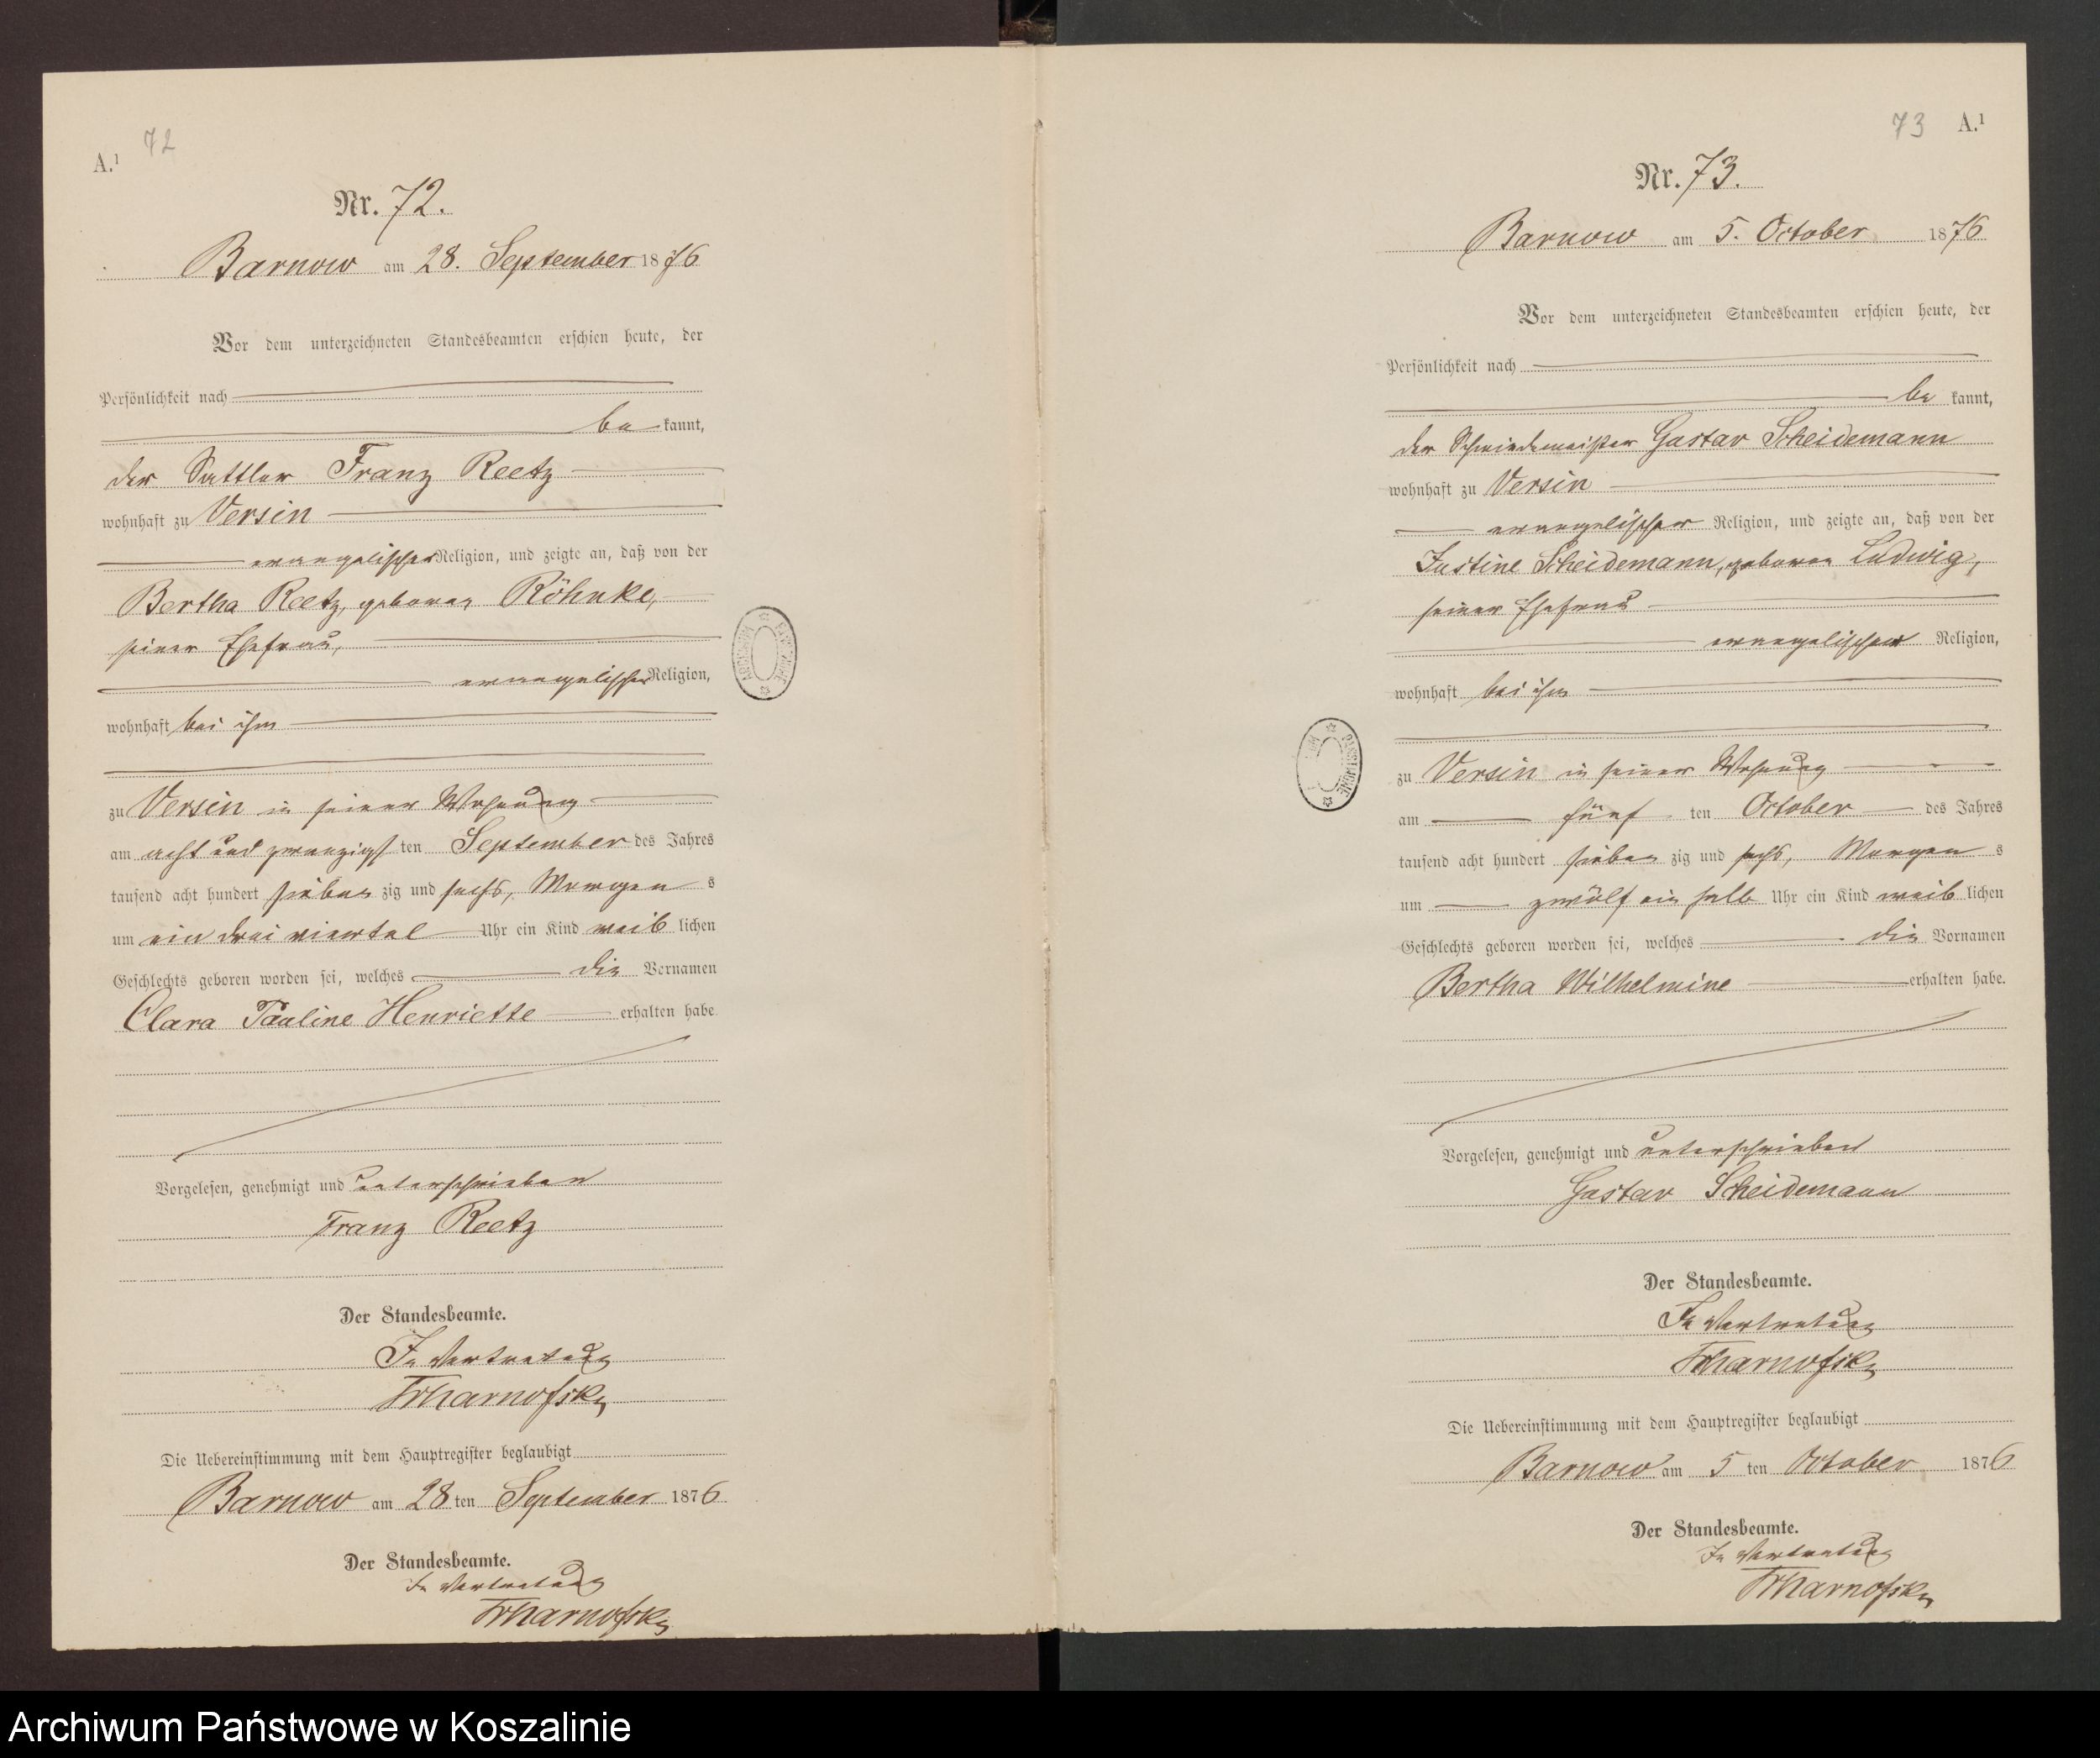 A.¹ 72
Nr. 72.
Barnow am 28. September 1876
Vor dem unterzeichneten Standesbeamten erschien heute, der
Persönlichkeit nach
be kannt,
der Sattler Franz Reetz
wohnhaft zu Versin
evangelischer Religion, und zeigte an, daß von der
Bertha Reetz, geboren Röhnke,
seiner Ehefrau,
evangelischer Religion,
wohnhaft bei ihm
zu Versin in seiner Wohnung
am acht und zwanzigs ten September des Jahres
tausend acht hundert sieben zig und sechs, Morgen s
um ein drei viertel Uhr ein Kind weib lichen
Geschlechts geboren worden sei, welches die Vornamen
Clara Pauline Henriette erhalten habe
Vorgelesen, genehmigt und unterschrieben
Franz Reetz
Der Standesbeamte.
In Vertretung
Die Uebereinstimmung mit dem Hauptregister beglaubigt
Barnow am 28 ten September 1876
Der Standesbeamte.
In Vertretung
73 A.¹
Nr. 73.
Barnow am 5. October 1876
Vor dem unterzeichneten Standesbeamten erschien heute, der
Persönlichkeit nach
be kannt,
der Schmiedemeister Gustav Scheidemann
wohnhaft zu Versin
evangelischer Religion, und zeigte an, daß von der
Justine Scheidemann, geboren Ludwig,
seiner Ehefrau
evangelischer Religion,
wohnhaft bei ihm
zu Versin in seiner Wohnung
am fünf ten October des Jahres
tausend acht hundert sieben zig und sechs, Morgen s
um zwölf ein halb Uhr ein Kind weib lichen
Geschlechts geboren worden sei, welches die Vornamen
Bertha Wilhelmine erhalten habe.
Vorgelesen, genehmigt und unterschrieben
Gustav Scheidemann
Der Standesbeamte.
In Vertretung
Die Uebereinstimmung mit dem Hauptregister beglaubigt
Barnow am 5 ten October 1876
Der Standesbeamte.
In Vertretung
Archiwum Państwowe w Koszalinie